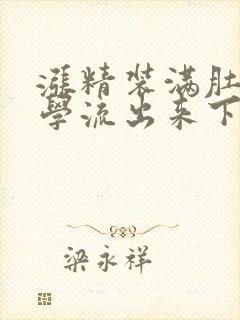 漲精装满肚
學流出来下
梁永祥